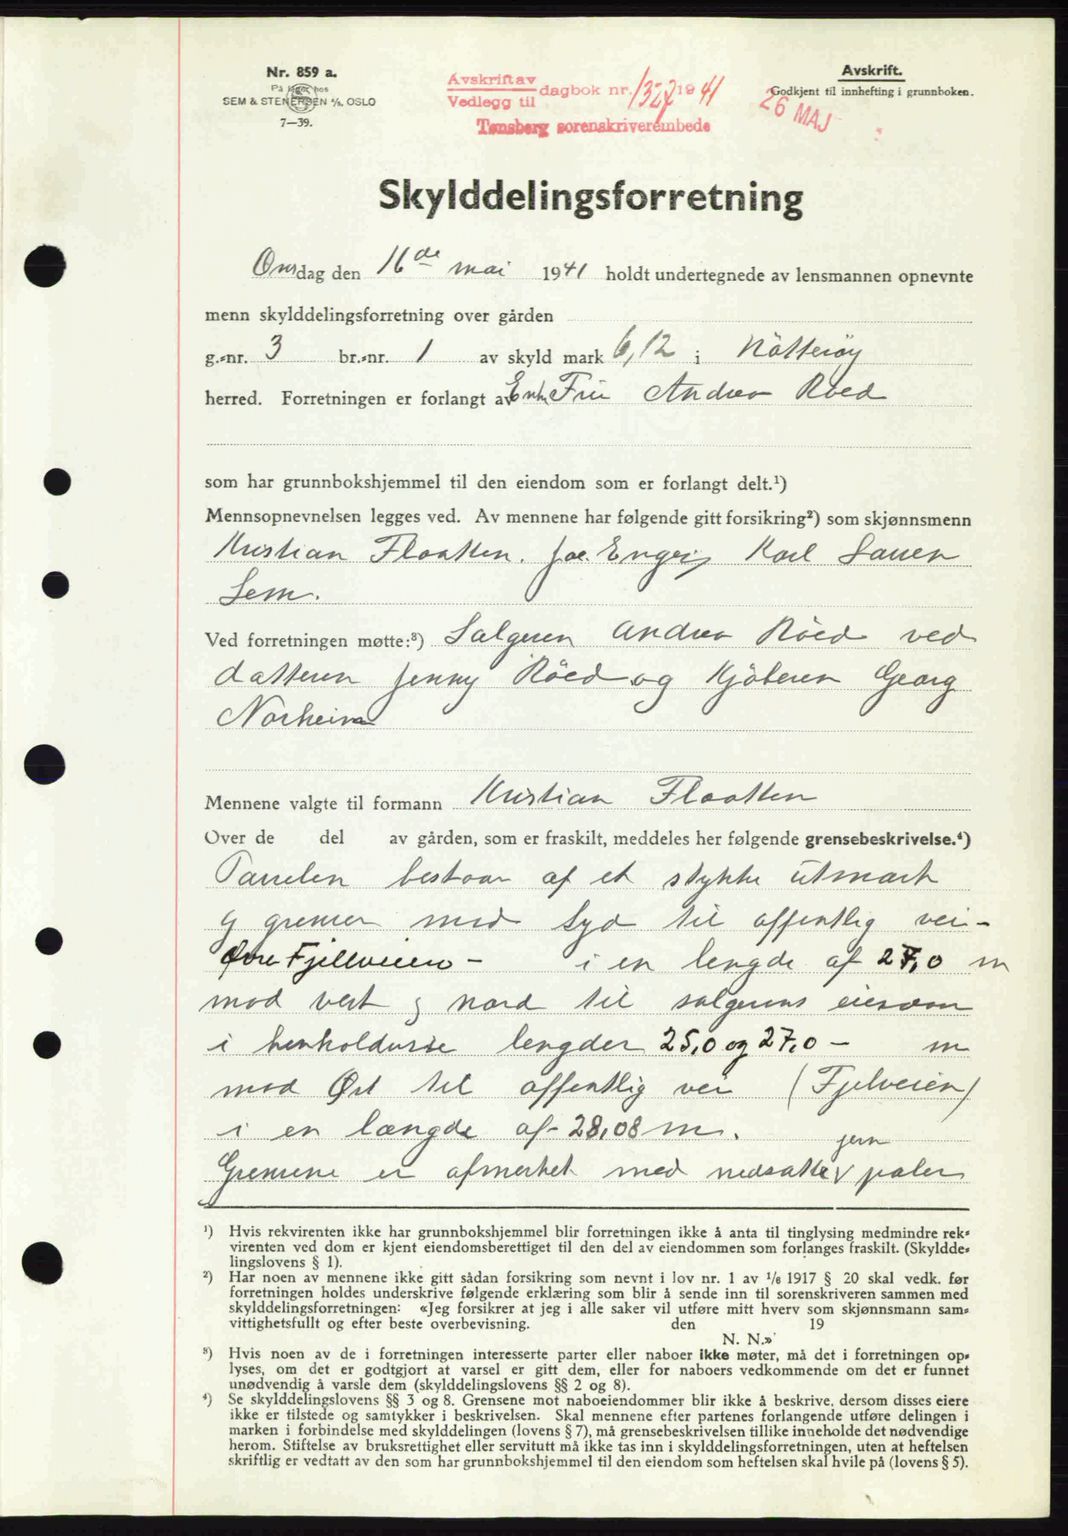 Nr. 859 a.
På lager hos
SEM & STENERSEN A/S, OSLO
7—39.
Avskrift av
Vedlegg til
dagbok nr. 1327 1941
Tønsberg sorenskriverembede
Avskrift.
Godkjent til innhefting i grunnboken.
26 MAJ
Skylddelingsforretning
Onsdag den 16de mai 1941 holdt undertegnede av lensmannen opnevnte
menn skylddelingsforretning over gården
g.-nr. 3 br.-nr. 1 av skyld mark 6,12 i Nötteröy
herred. Forretningen er forlangt av Enke Fru Andrea Röed
som har grunnbokshjemmel til den eiendom som er forlangt delt.¹)
Mennsopnevnelsen legges ved. Av mennene har følgende gitt forsikring²) som skjønnsmenn
Kristian Flaatten. Joh. Enger, Karl Sauer
Sem.
Ved forretningen møtte:³) Salgeren Andrea Röed ved
datteren Jenny Röed og Kjöberen Georg
Norheim
Mennene valgte til formann Kristian Flaatten
Over de del av gården, som er fraskilt, meddeles her følgende grensebeskrivelse.⁴)
Parselen bestaar af et stykke utmark
og grenser mod Syd til offentlig vei-
Øvre Fjellveien - i en lengde af 27,0 m
mod vest og nord til salgerens eiendom
i henholdsvise lengder 25,0 og 27,0 - m
mod Øst til offentlig vei (Fjelveien)
i en længde af 28,08 m.
jern
Grensene er afmerket med nedsatte v paler
¹) Hvis rekvirenten ikke har grunnbokshjemmel blir forretningen ikke å anta til tinglysing medmindre rek-
virenten ved dom er kjent eiendomsberettiget til den del av eiendommen som forlanges fraskilt. (Skyldde-
lingslovens § 1).
²) Har noen av mennene ikke gitt sådan forsikring som nevnt i lov nr. 1 av 1/6 1917 § 20 skal vedk. før
forretningen holdes underskrive følgende erklæring som blir å sende inn til sorenskriveren sammen med
skylddelingsforretningen: «Jeg forsikrer at jeg i alle saker vil utføre mitt hverv som skjønnsmann sam-
vittighetsfullt og efter beste overbevisning. den 19
N. N.»
³) Hvis noen av de i forretningen interesserte parter eller naboer ikke møter, må det i forretningen op-
lyses, om det er godtgjort at varsel er gitt dem, eller for naboers vedkommende om det er funnet
unødvendig å varsle dem (skylddelingslovens §§ 2 og 8).
⁴) Se skylddelingslovens §§ 3 og 8. Grensene mot naboeiendommer blir ikke å beskrive, dersom disses eiere
ikke er tilstede og samtykker i beskrivelsen. Skal mennene efter partenes forlangende utføre delingen i
marken i forbindelse med skylddelingen (lovens § 7), må grensebeskrivelsen tillike inneholde det nødvendige
herom. Stiftelse av bruksrettighet eller servitutt må ikke tas inn i skylddelingsforretningen, uten at heftelsen
skriftlig er vedtatt av den som har grunnbokshjemmel til den eiendom som heftelsen skal hvile på (lovens § 5).